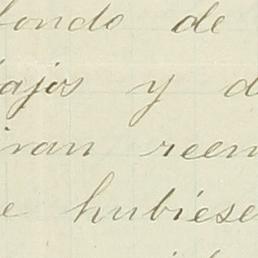 fondo de
ajos y d
iran reem
e hubiese